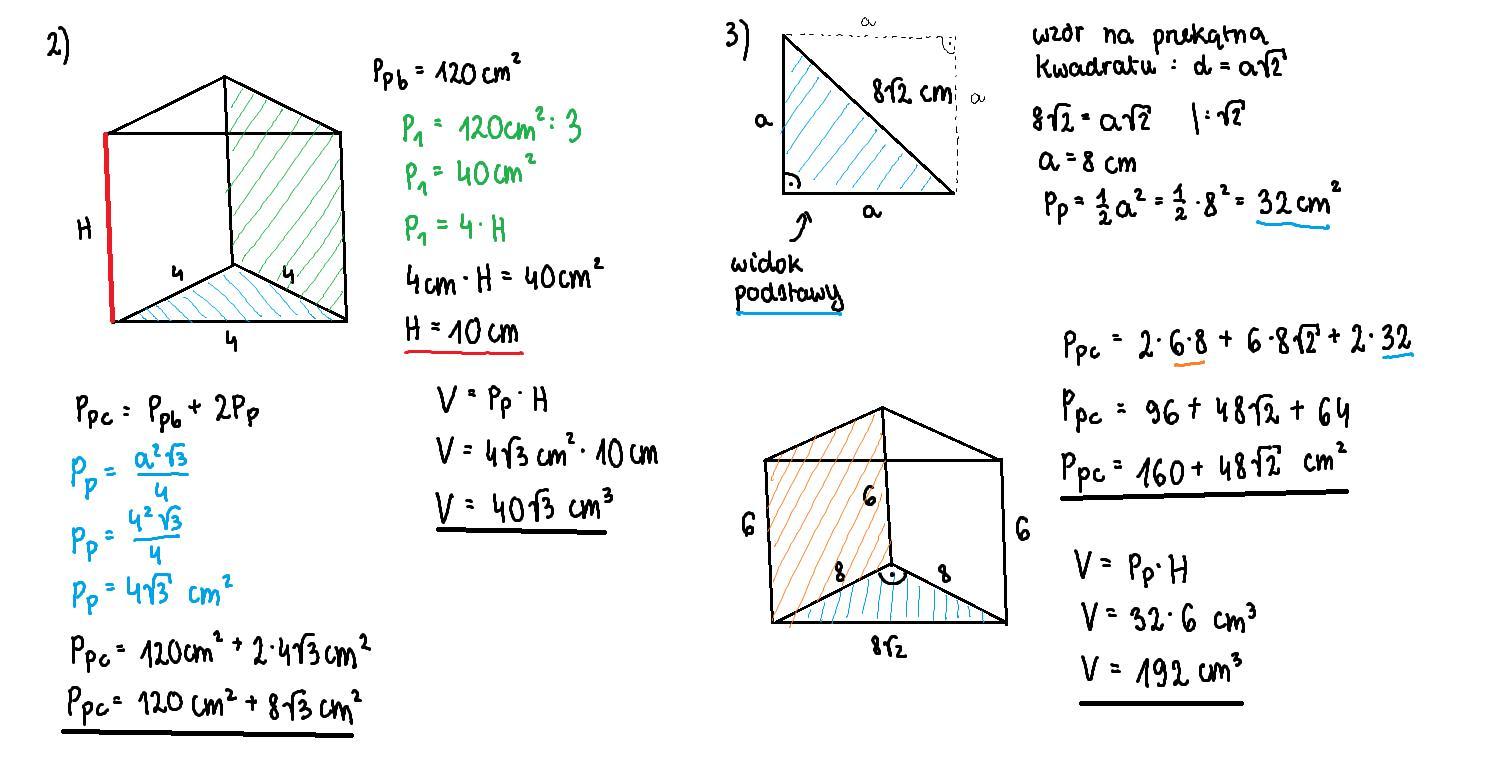 2)
P_pb = 120 cm²
P₁ = 120cm² : 3
P₁ = 40cm²
P₁ = 4 · H
4cm · H = 40cm²
H = 10 cm
H
4
4
4
P_pc = P_pb + 2P_p
P_p = a²√3 / 4
P_p = 4²√3 / 4
P_p = 4√3 cm²
P_pc = 120cm² + 2·4√3cm²
P_pc = 120 cm² + 8√3 cm²
V = P_p · H
V = 4√3 cm² · 10 cm
V = 40√3 cm³
3)
a
8√2 cm
a
a
a
widok
podstawy
wzór na przekątną
kwadratu : d = a√2
8√2 = a√2 |:√2
a = 8 cm
P_p = ½a² = ½ · 8² = 32 cm²
P_pc = 2·6·8 + 6·8√2 + 2·32
P_pc = 96 + 48√2 + 64
P_pc = 160 + 48√2 cm²
6
6
6
8
8
8√2
V = P_p · H
V = 32·6 cm³
V = 192 cm³